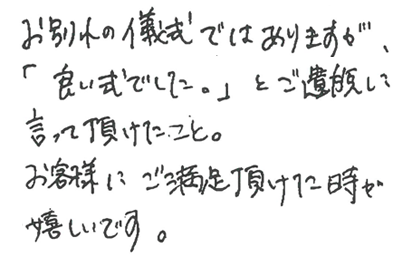 お別れの儀式ではありますが、
「良い式でした。」とご遺族に
言って頂けたこと。
お客様にご満足頂けた時が
嬉しいです。